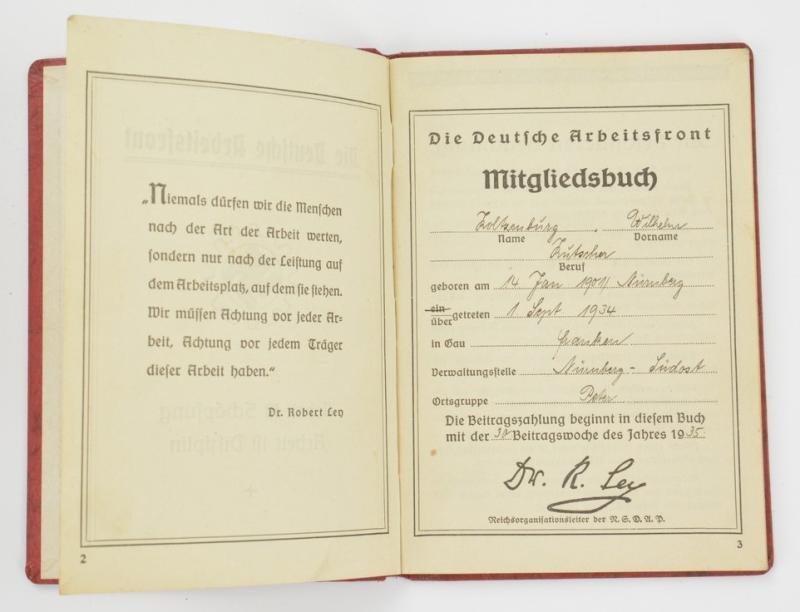 „Niemals dürfen wir die Menschen
nach der Art der Arbeit werten,
sondern nur nach der Leistung auf
dem Arbeitsplatz, auf dem sie stehen.
Wir müssen Achtung vor jeder Ar-
beit, Achtung vor jedem Träger
dieser Arbeit haben.“
Dr. Robert Ley
2
Die Deutsche Arbeitsfront
Mitgliedsbuch
Wilhelm
Name Vorname
Kutscher
Beruf
geboren am 14. Jan 1901 Nürnberg
ein
übergetreten 1 Sept 1934
in Gau Franken
Verwaltungsstelle Nürnberg - Südost
Ortsgruppe Peter
Die Beitragszahlung beginnt in diesem Buch
mit der Beitragswoche des Jahres 1935
Dr. R. Ley
Reichsorganisationsleiter der N.S.D.A.P.
3